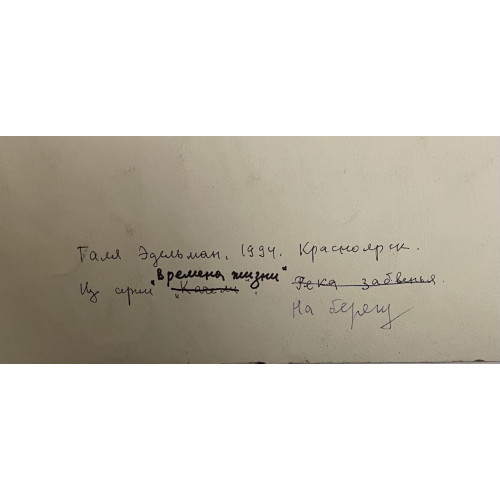 Галя Эдельман, 1994. Красноярск.
"Времена жизни"
Из серии "Качели". Река забвенья.
На берегу